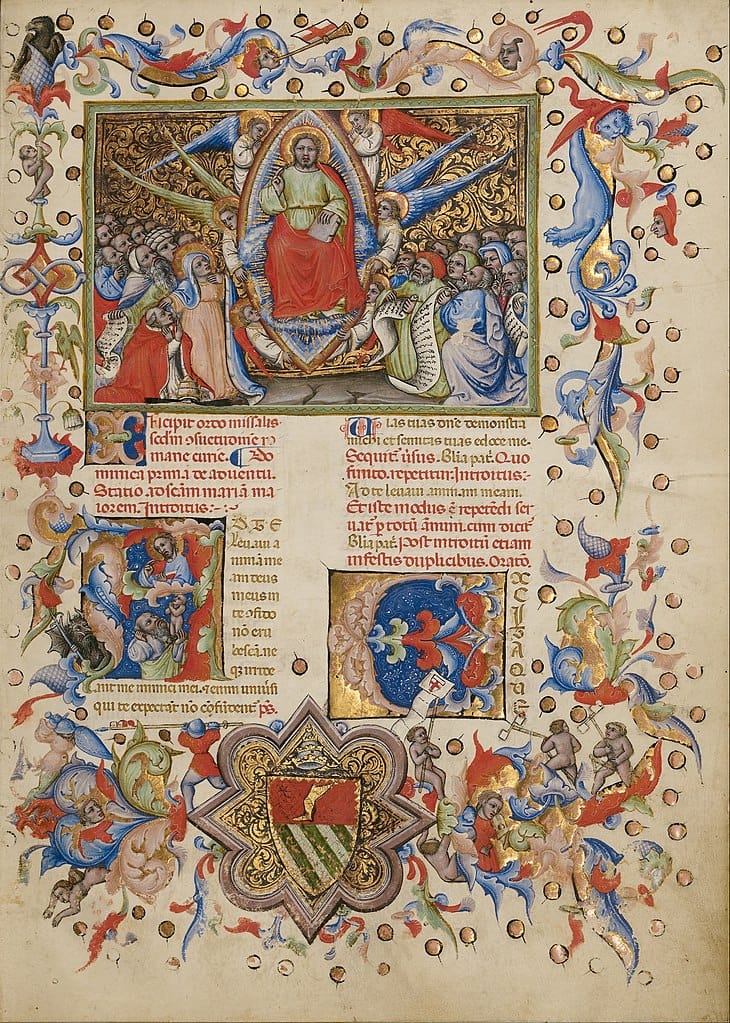 Incipit ordo missalis
scdm ɔsuetudinē ro
mane curie. Do
minica prima de aduentu.
Statio ad scam mariā ma
iorem. Introitus:-
AD TE
leuaui a
nimā me
am deus
meus in
te ɔfido
nō eru
bescā. ne
qꝫ irride
ant me inimici mei. etenim uniuūsi
qui te expectāt nō cōfūdent᷑ ps.
Uias tuas dñe demonstra
michi et semitas tuas edoce me.
Sequit᷑ ūsus. Glia pat̄. Quo
finito. repetitur. Introitus:-
Ad te leuaui animam meam.
Et iste modus ē repetēdi ser
uat᷑ p totū annum. cum dicit᷑
Glia pat̄. Post introitū etiam
in festis duplicibus. Orato.
XCITA QS